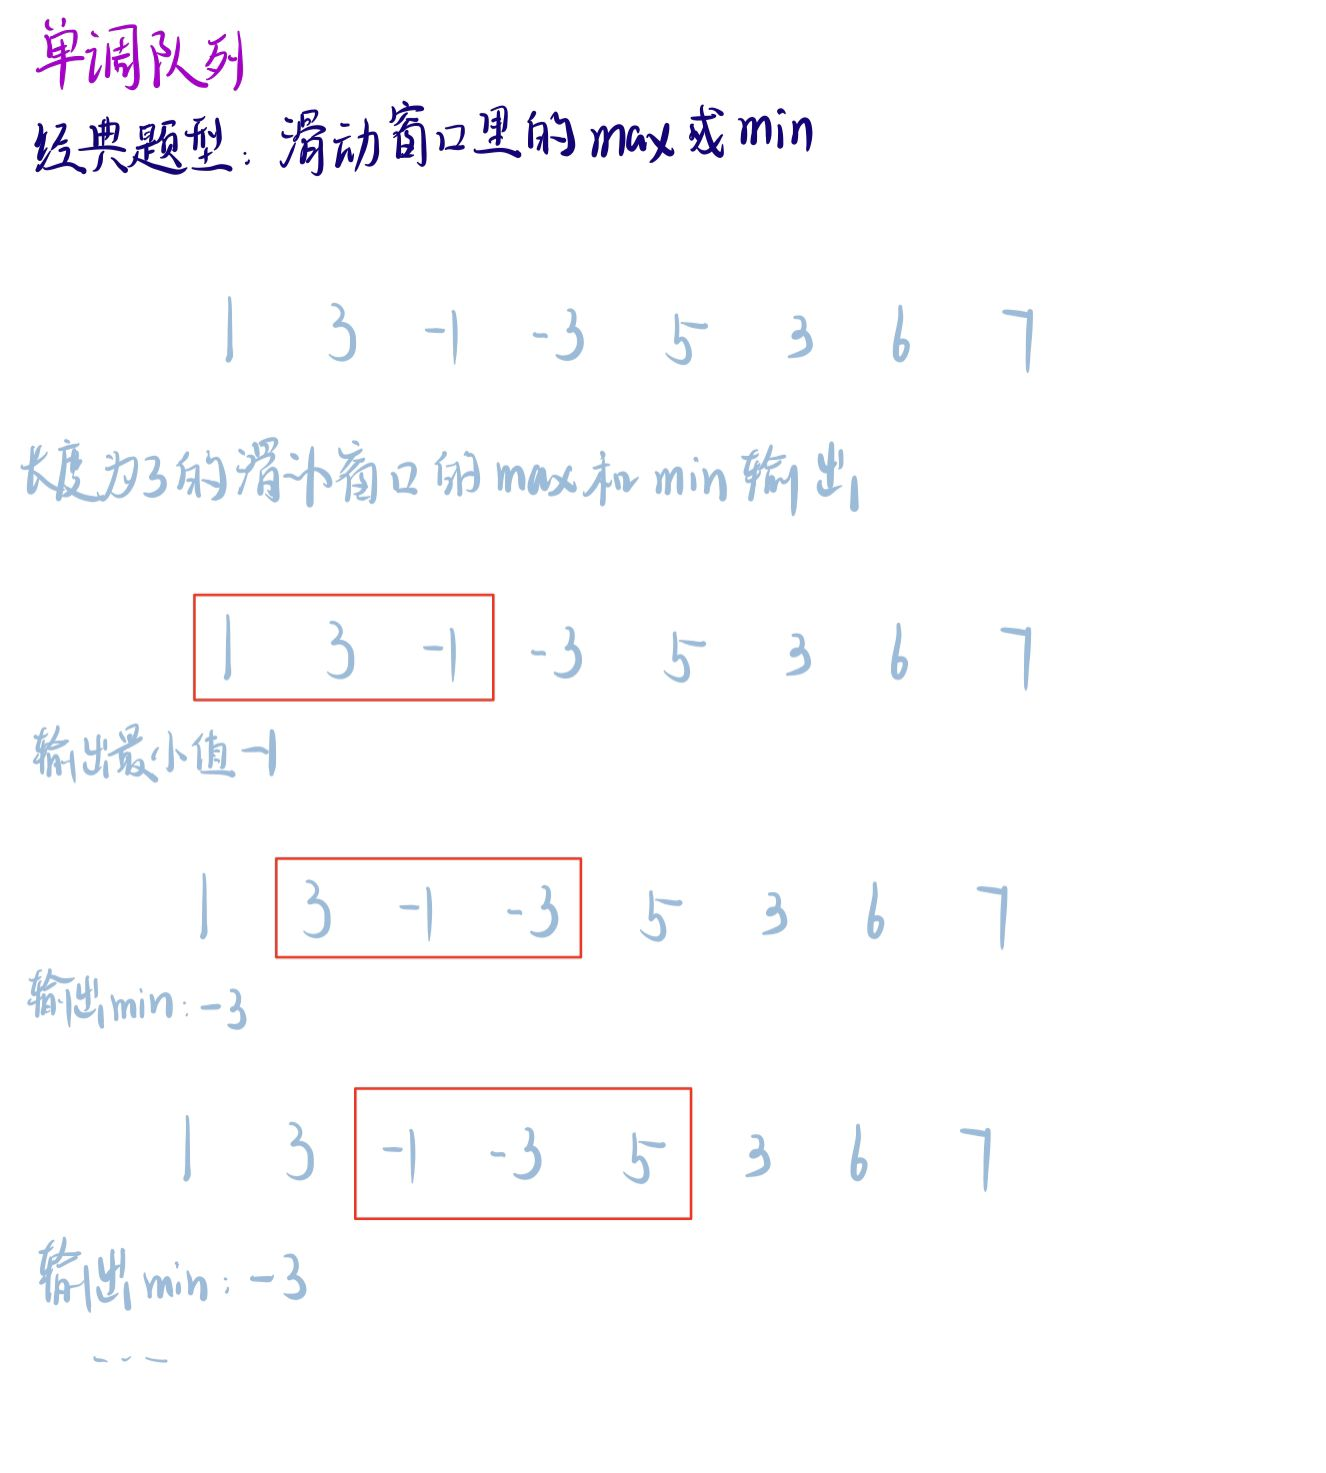 单调队列
经典题型：滑动窗口里的max或min
1 3 -1 -3 5 3 6 7
长度为3的滑动窗口的max和min输出
1 3 -1 -3 5 3 6 7
输出最小值-1
1 3 -1 -3 5 3 6 7
输出min：-3
1 3 -1 -3 5 3 6 7
输出min：-3
...